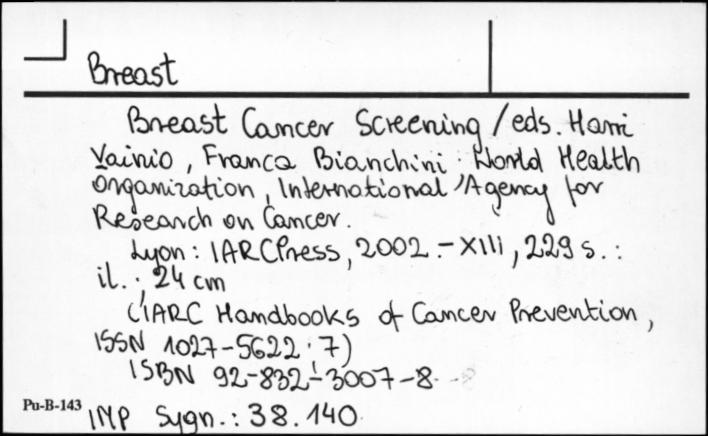 Breast
Breast Cancer Screening / eds. Harri
Vainio, Franca Bianchini ; World Health
Organization, International Agency for
Research on Cancer.
Lyon : IARCPress, 2002. - XIII, 229 s. :
il. ; 24 cm
(IARC Handbooks of Cancer Prevention,
ISSN 1027-5622 ; 7)
ISBN 92-832-3007-8
Pu-B-143
INP Sygn.: 38.140